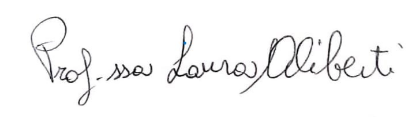 Prof.ssa Laura Aliberti